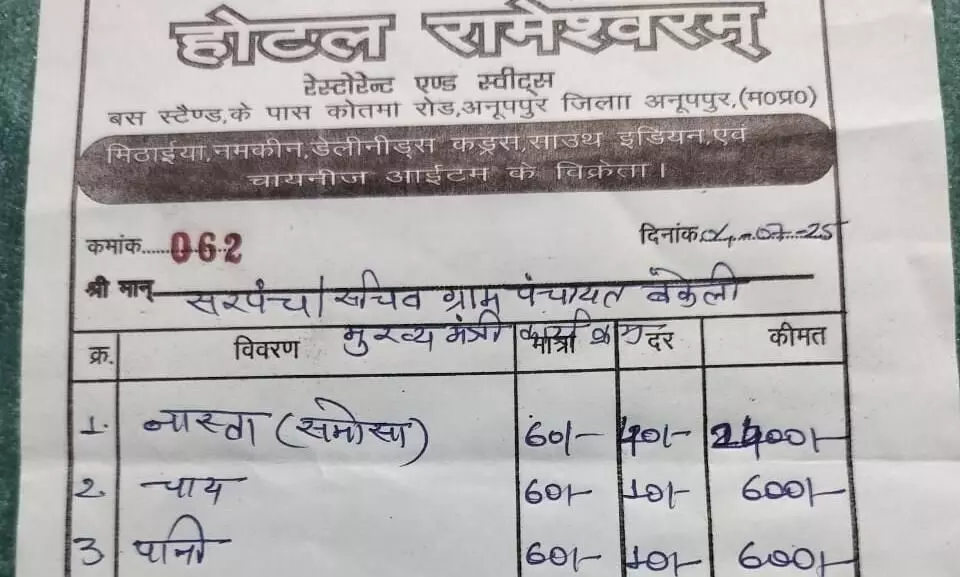 होटल रामेश्वरम्
रेस्टोरेन्ट एण्ड स्वीट्स
बस स्टैण्ड,के पास कोतमा रोड,अनूपपुर जिलाा अनूपपुर,(म०प्र०)
मिठाईया,नमकीन,डेलीनीड्स कड्रस,साउथ इडियन,एवं
चायनीज आईटम के विक्रेता।
कमांक......062
दिनांक.04-07-25
श्री मान् सरपंच/सचिव ग्राम पंचायत बकेली
मुख्य मंत्री कार्यक्रम
क्र. विवरण मात्रा दर कीमत
1. नास्ता (समोसा) 60/- 40/- 2400/-
2. चाय 60/- 10/- 600/-
3 पानी 60/- 10/- 600/-